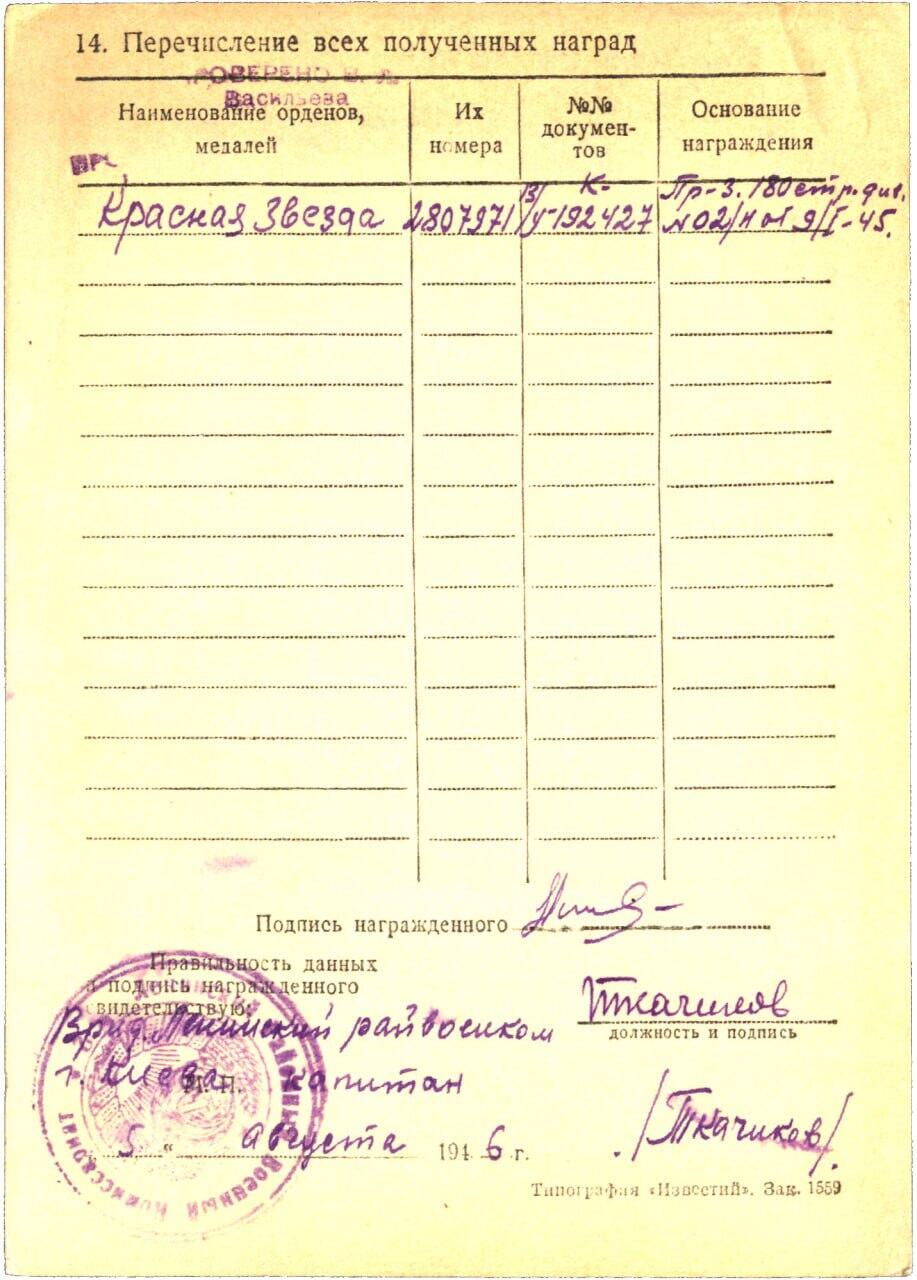 14. Перечисление всех полученных наград
ПРОВЕРЕНО
Васильева
Наименование орденов, медалей
Их номера
№№ документов
Основание награждения
Красная Звезда 2807971 К-192427 Пр-з. 180 стр. див. №02/н от 9/I-45.
Подпись награжденного
Правильность данных
и подпись награжденного
свидетельствую:
Врид. Ленинский райвоенком
Ткачиков
должность и подпись
г. Киева М. П. капитан
/Ткачиков/
5 " августа 1946 г.
Военный Комиссариат
Типография «Известий». Зак. 1559